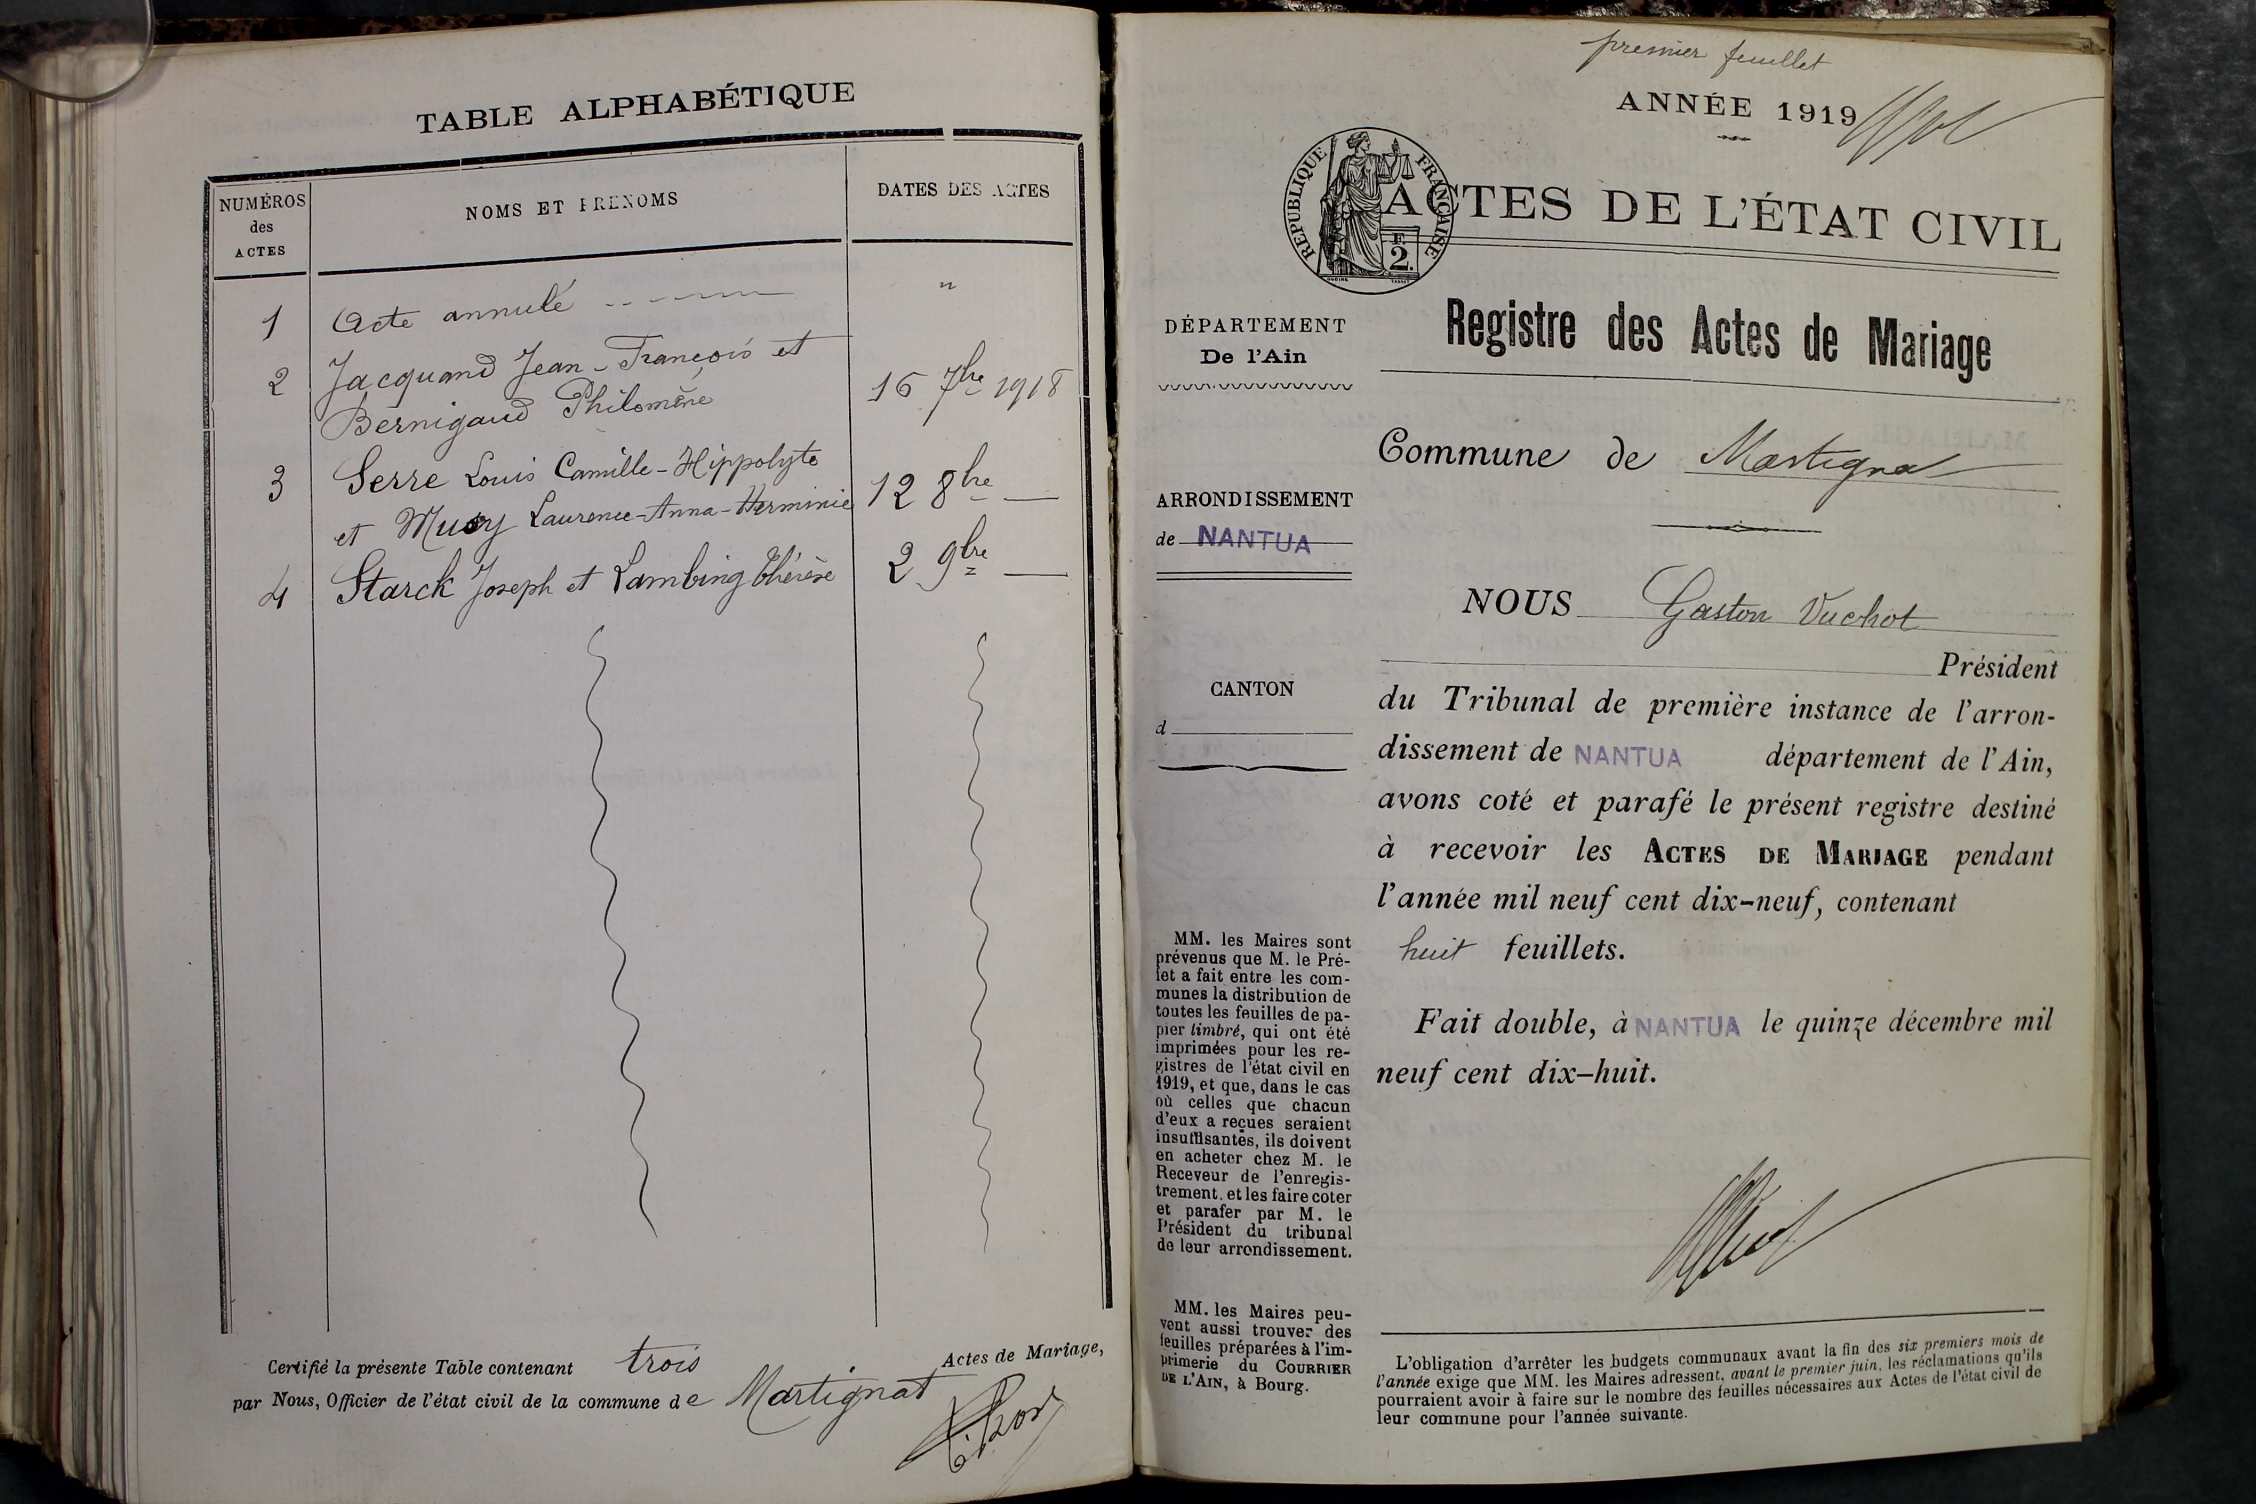 TABLE ALPHABÉTIQUE
NUMÉROS
des
ACTES
NOMS ET PRENOMS
DATES DES ACTES
1 Acte annulé "
2 Jacquand Jean-François et
Bernigaud Philomène 16 7bre 1918
3 Serre Louis Camille-Hippolyte
et Musy Laurence-Anna-Herminie 12 8bre —
4 Starck Joseph et Lambing Thérèse 2 9bre —
Certifié la présente Table contenant trois Actes de Mariage,
par Nous, Officier de l'état civil de la commune de Martignat
premier feuillet
ANNÉE 1919
RÉPUBLIQUE FRANÇAISE
F.
2.
ACTES DE L'ÉTAT CIVIL
DÉPARTEMENT
De l'Ain
Registre des Actes de Mariage
Commune de Martignat
ARRONDISSEMENT
de NANTUA
NOUS Gaston Vuchot
Président
CANTON
d
du Tribunal de première instance de l'arron-
dissement de NANTUA département de l'Ain,
avons coté et parafé le présent registre destiné
à recevoir les ACTES DE MARIAGE pendant
l'année mil neuf cent dix-neuf, contenant
huit feuillets.
Fait double, à NANTUA le quinze décembre mil
neuf cent dix-huit.
MM. les Maires sont
prévenus que M. le Pré-
fet a fait entre les com-
munes la distribution de
toutes les feuilles de pa-
pier timbré, qui ont été
imprimées pour les re-
gistres de l'état civil en
1919, et que, dans le cas
où celles que chacun
d'eux a reçues seraient
insuffisantes, ils doivent
en acheter chez M. le
Receveur de l'enregis-
trement, et les faire coter
et parafer par M. le
Président du tribunal
de leur arrondissement.
MM. les Maires peu-
vent aussi trouver des
feuilles préparées à l'im-
primerie du COURRIER
DE L'AIN, à Bourg.
L'obligation d'arrêter les budgets communaux avant la fin des six premiers mois de
l'année exige que MM. les Maires adressent, avant le premier juin, les réclamations qu'ils
pourraient avoir à faire sur le nombre des feuilles nécessaires aux Actes de l'état civil de
leur commune pour l'année suivante.